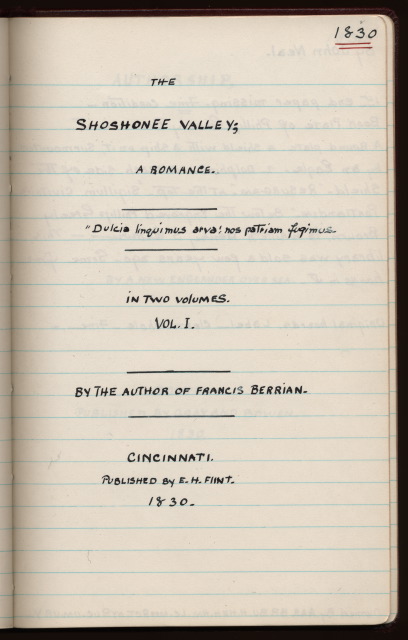 1830
THE
SHOSHONEE VALLEY;
A ROMANCE.
"Dulcia linquimus arva: nos patriam fugimus.
IN TWO VOLUMES.
VOL. I.
BY THE AUTHOR OF FRANCIS BERRIAN.
CINCINNATI.
PUBLISHED BY E. H. FLINT.
1830.